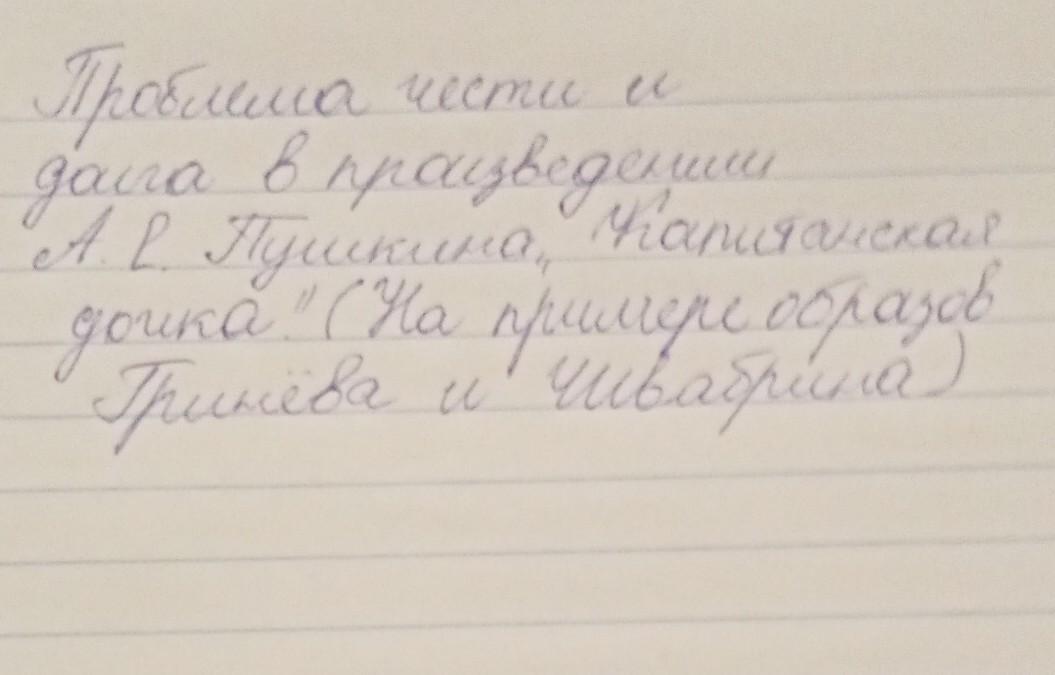 Проблема чести и
долга в произведении
А. С. Пушкина „Капитанская
дочка." (На примере образов
Гринёва и Швабрина)